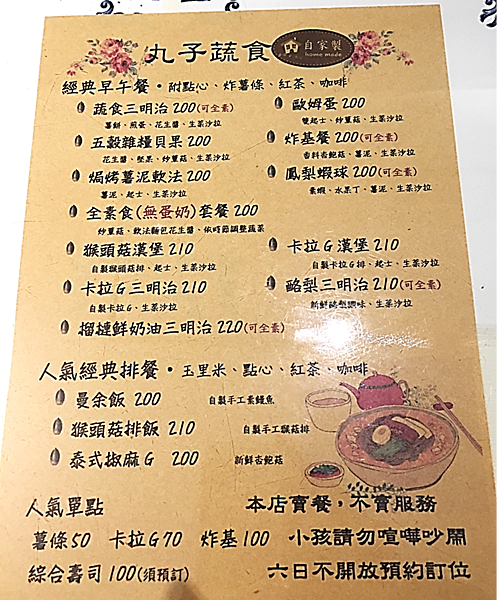 丸子蔬食 自家製
home made
經典早午餐・附點心、炸薯條、紅茶、咖啡
蔬食三明治 200(可全素)
薯餅、煎蛋、花生醬、生菜沙拉
歐姆蛋 200
雙起士、炒蕈菇、生菜沙拉
五穀雜糧貝果 200
花生醬、堅果、炒蕈菇、生菜沙拉
炸基餐 200(可全素)
香料杏鮑菇、薯泥、生菜沙拉
焗烤薯泥軟法 200
薯泥、起士、生菜沙拉
鳳梨蝦球 200(可全素)
素蝦、水果丁、薯泥、生菜沙拉
全素食(無蛋奶)套餐 200
炒蕈菇、軟法麵包花生醬、依時節調整蔬菜
猴頭菇漢堡 210
自製猴頭菇排、起士、生菜沙拉
卡拉G漢堡 210
自製卡拉G排、起士、生菜沙拉
卡拉G三明治 210
自製卡拉G、生菜沙拉
酪梨三明治 210(可全素)
新鮮酪梨調味、生菜沙拉
榴槤鮮奶油三明治 220(可全素)
人氣經典排餐・玉里米、點心、紅茶、咖啡
曼余飯 200 自製手工素鰻魚
猴頭菇排飯 210 自製手工猴菇排
泰式椒麻G 200 新鮮杏鮑菇
人氣單點 本店賣餐，不賣服務
薯條50 卡拉G70 炸基100 小孩請勿喧嘩吵鬧
綜合壽司100(須預訂) 六日不開放預約訂位